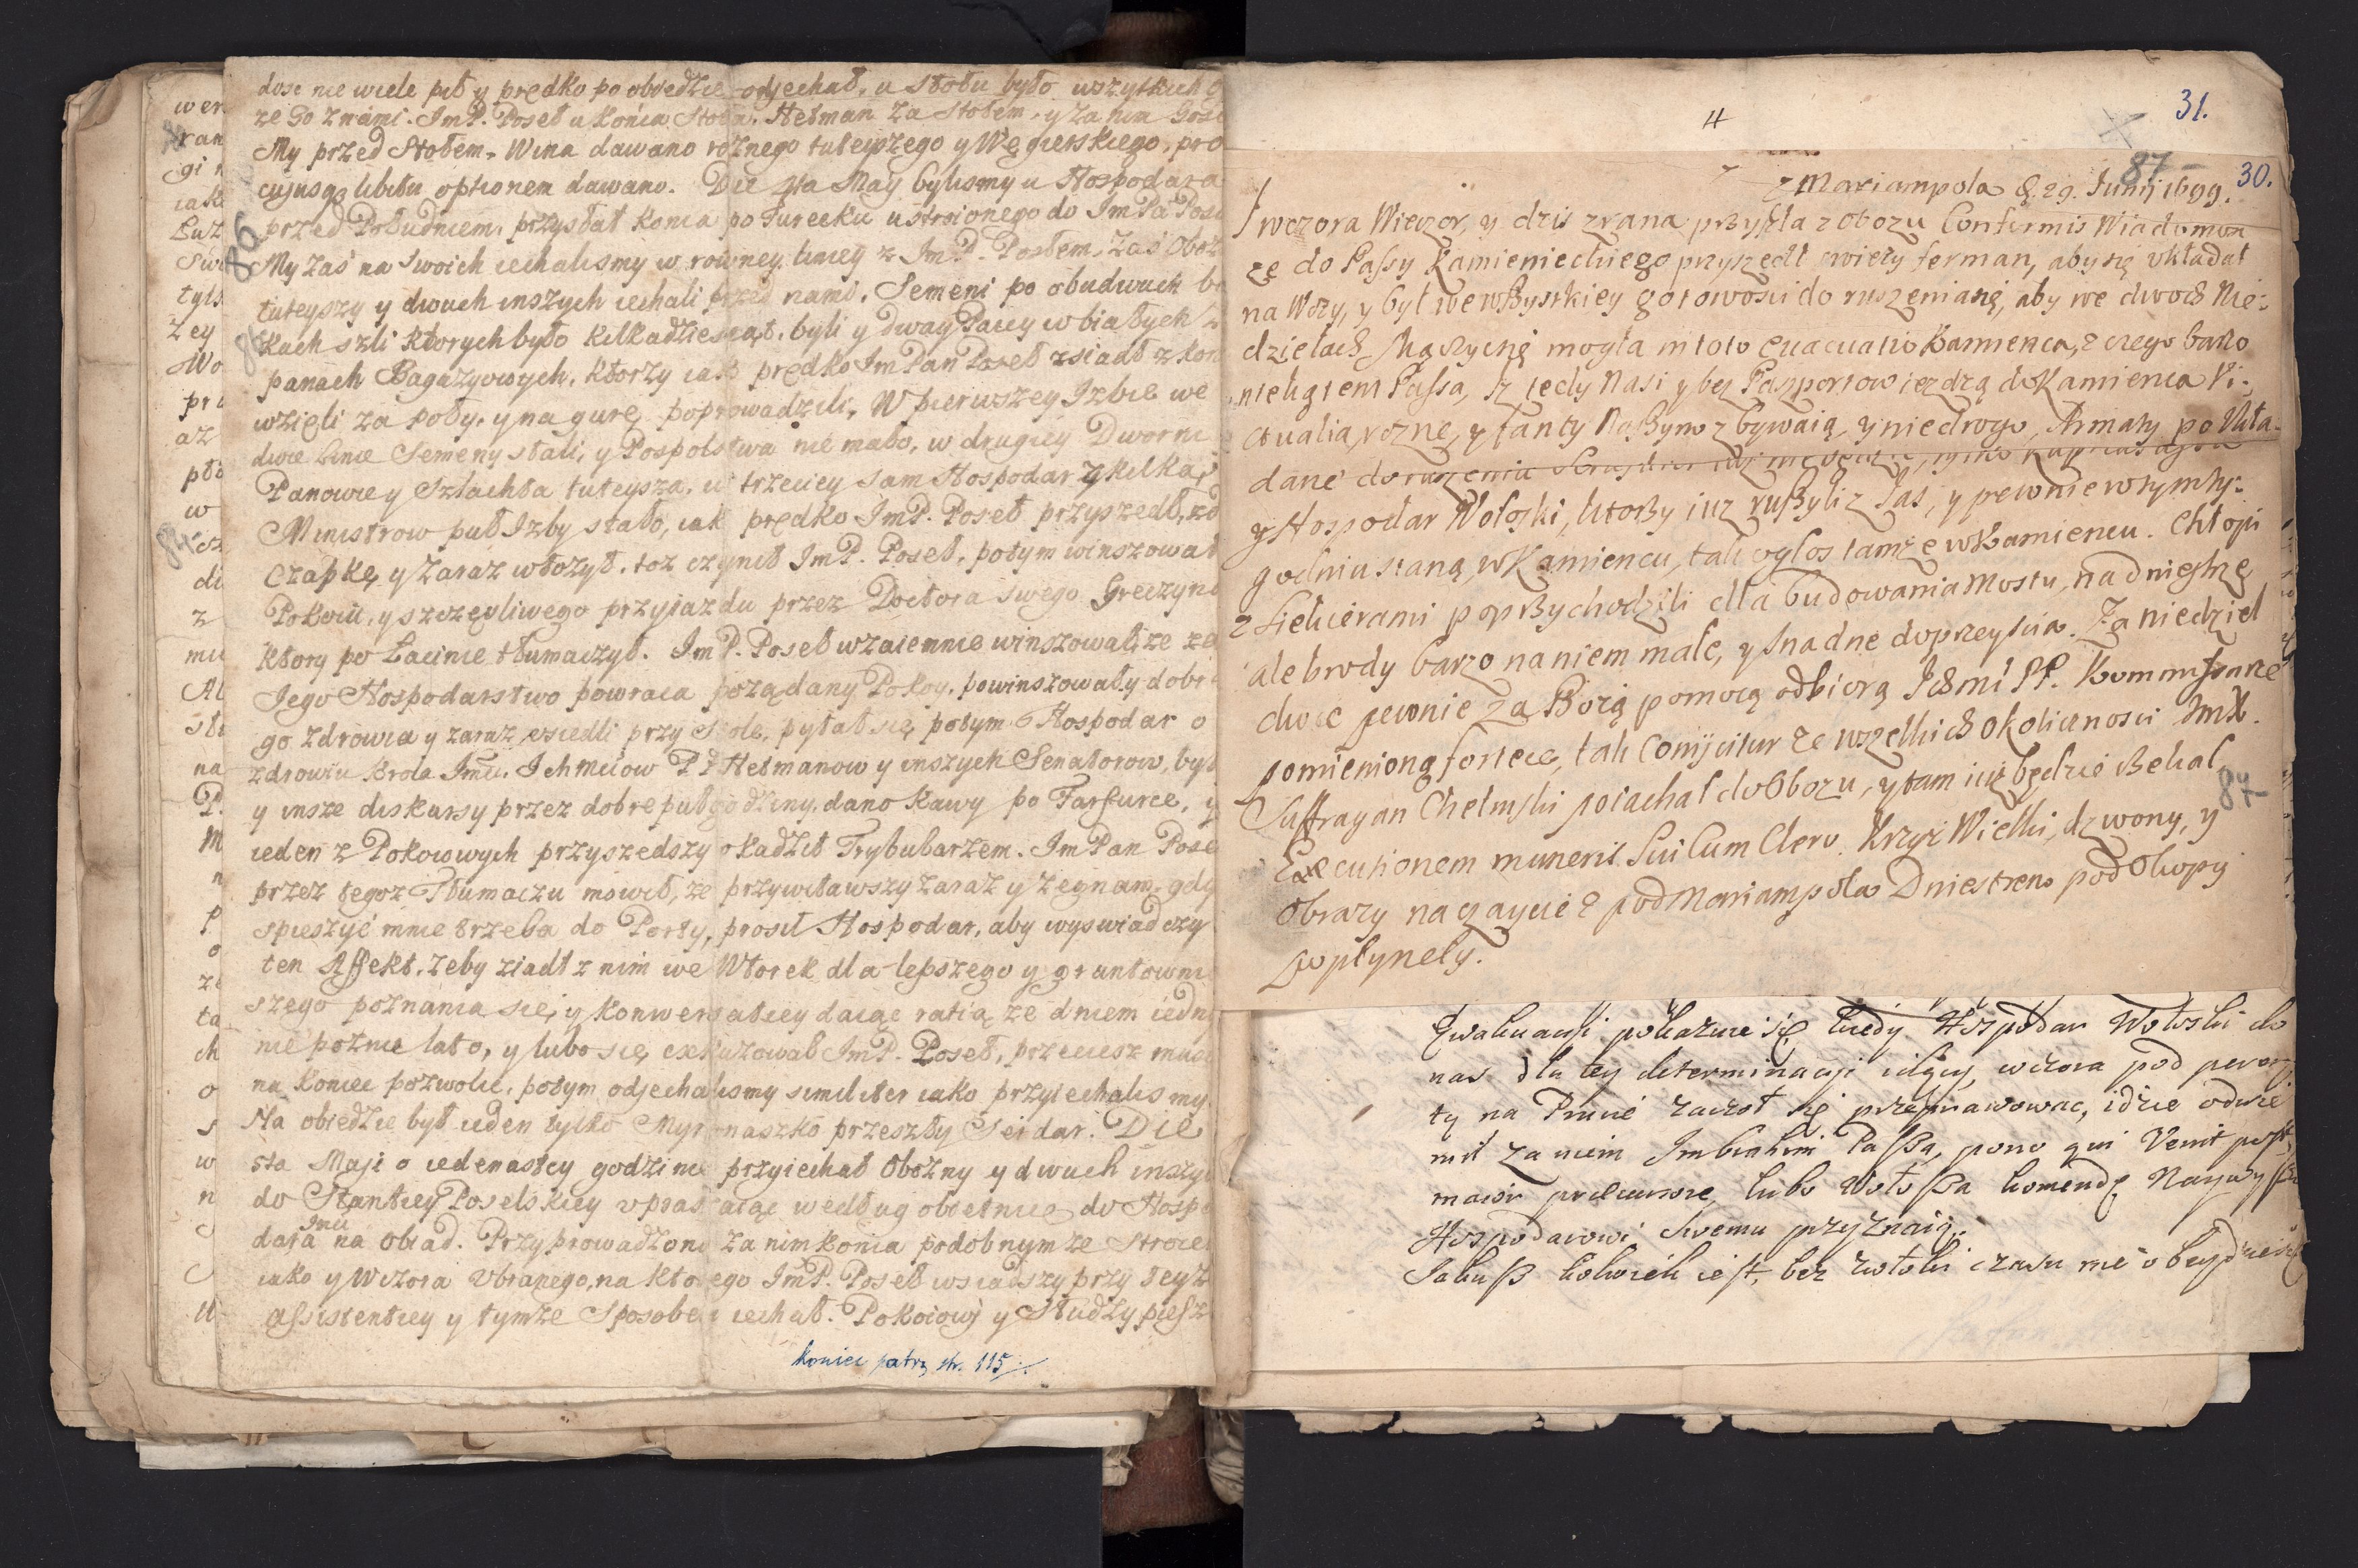 dosc nie wiele pił y prędko po obiedzie odjechał, u Stołu było wszytkich
ze 30 z nami. ImP. Poseł u Końca Stołu, Hetman za Stołem, y za nim
My przed Stołem. Wina dawano roznego tuteyszego y Węgierskiego, pro
cujusq libitu optionem dawano. Die 4ta Maij bylismy u Hospodara
przed Południem, przysłał konia po Turecku ustroionego do ImPa
My zaś na swoich iechalismy w rowney liniey z ImP. Posłem, zaś
tuteyszy y dwuch inszych iechali przed nami, Semeni po obudwuch
Kach szli ktorych było kilkadziesiąt, byli y dway Paicy w białych
panach Bagazyowych, ktorzy iak prędko Im Pan Poseł zsiadł z
wzięli za poły, y na gurę poprowadzili, W pierwszey Izbie we
dwie Linie Semeny stali, y Pospolstwa nie mało, w drugiey Dworni
Panowie y Szlachta tuteysza, w trzeciey sam Hospodar z kilką
Ministrow puł Izby stało, iak prędko ImP. Poseł przyszedł,
Czapkę, y zaraz włozył, toz czynił ImP. Poseł, potym winszował
Pokoiu, y szczęsliwego przyjazdu przez Doctora swego Greczyna
Ktory po Łacinie tłumaczył. ImP. Poseł wzaiemnie winszował, ze
Jego Hospodarstwo powraca poządany Pokoy, powinszowały
go zdrowia y zaraz usiedli przy Stole, pytał się potym Hospodar o
zdrowiu Krola Imci, Ichmciow PP Hetmanow y inszych Senatorow,
y insze diskursy przez dobre puł godziny, dano Kawy po Farfurce,
ieden z Pokoiowych przyszedszy okadził Trybularzem. Im Pan
przez tegoz Tłumacza mowił, ze przywitawszy zaraz y zegnam, gdy
spieszyć mnie trzeba do Porty, prosił Hospodar, aby wyswiadczy
ten Affekt, zeby ziadł z nim we Wtorek dla lepszego y gruntowni
szego poznania się, y konwersatiey daiąc ratią ze dniem
nie poznie lato, y lubo się exkuzował ImP. Poseł, przeciesz
na koniec pozwolił, potym odjechalismy similiter iako przyiechalismy
Na obiedzie był ieden tylko Myronaszko przeszły Serdar. Die
5ta Maji o iedenastey godzinie przyiechał Obozny y dwuch
do Stantiey Poselskiey vpraszaiąc według obietnice do
dara Imci na Obiad. Przyprowadzono za nim konia podobnym ze
iako y Wczora Vbranego, na ktorego ImP. Poseł wsiadszy przy teyz
assistentiey y tymze Sposobem iechał. Pokoiowi y Słudzy
koniec patrz str. 115
4
31.
87
30.
z Mariampola d. 29. Junij 1699.
Wczora Wieczor, y dzis zrana przyszła z Obozu Conformis Wiadomosc
ze do Passy Kamienieckiego przyszedł swiezy ferman, aby się vkładał
na Wozy, y był we wszystkiey gotowosci do ruszenia się, aby we dwoch Nie-
dzielach mogła in toto evacuatio Kamienca, z czego barzo
Passa, tedy Nasi y bez Pasportow iezdzą do Kamienca Vi-
ctualia rozne, y fanty Naszym zbywaią, y nie drogo, Armaty
dane do ruszenia
y Hospodar Wołoski, ktorzy iuz ruszyli z Jas, y pewnie w tym
godniu staną w Kamiencu, tak ogłos tamze w Kamiencu. Chłopi
z Siekierami poprzychodzili dla budowania Mostu, na Dniestrze
ale brody barzo na niem małe, y snadne do przeyscia. Za niedziel
dwie pewnie za Bozą pomocą odbiorą Ichmć PP. Kommissarze
pomienioną fortece, tak conijcitur ze wszelkich okolicznosci ImX.
Suffragan Chełmski poiachał do Obozu, y tam iuz będzie czekał
Executionem muneris sui cum Clero. Krzyz Wielki, dzwony, y
Obrazy pod Mariampola Dniestrem pod Okopy
popłyneły.
87
Ewakuacyi pokazuie się kiedy Hospodar Wołoski do
nas dla tey determinacyi idący, wczora pod
ty na Prucie zaczoł się przeprawowac, idzie
za niem Imbrahim Passa, pono qui venit post
maior praecursore, lubo Wołosza komendę
Hospodarowi swemu przyznaią.
Jakusz kolwiek iest, bez zwłoki czasu nie